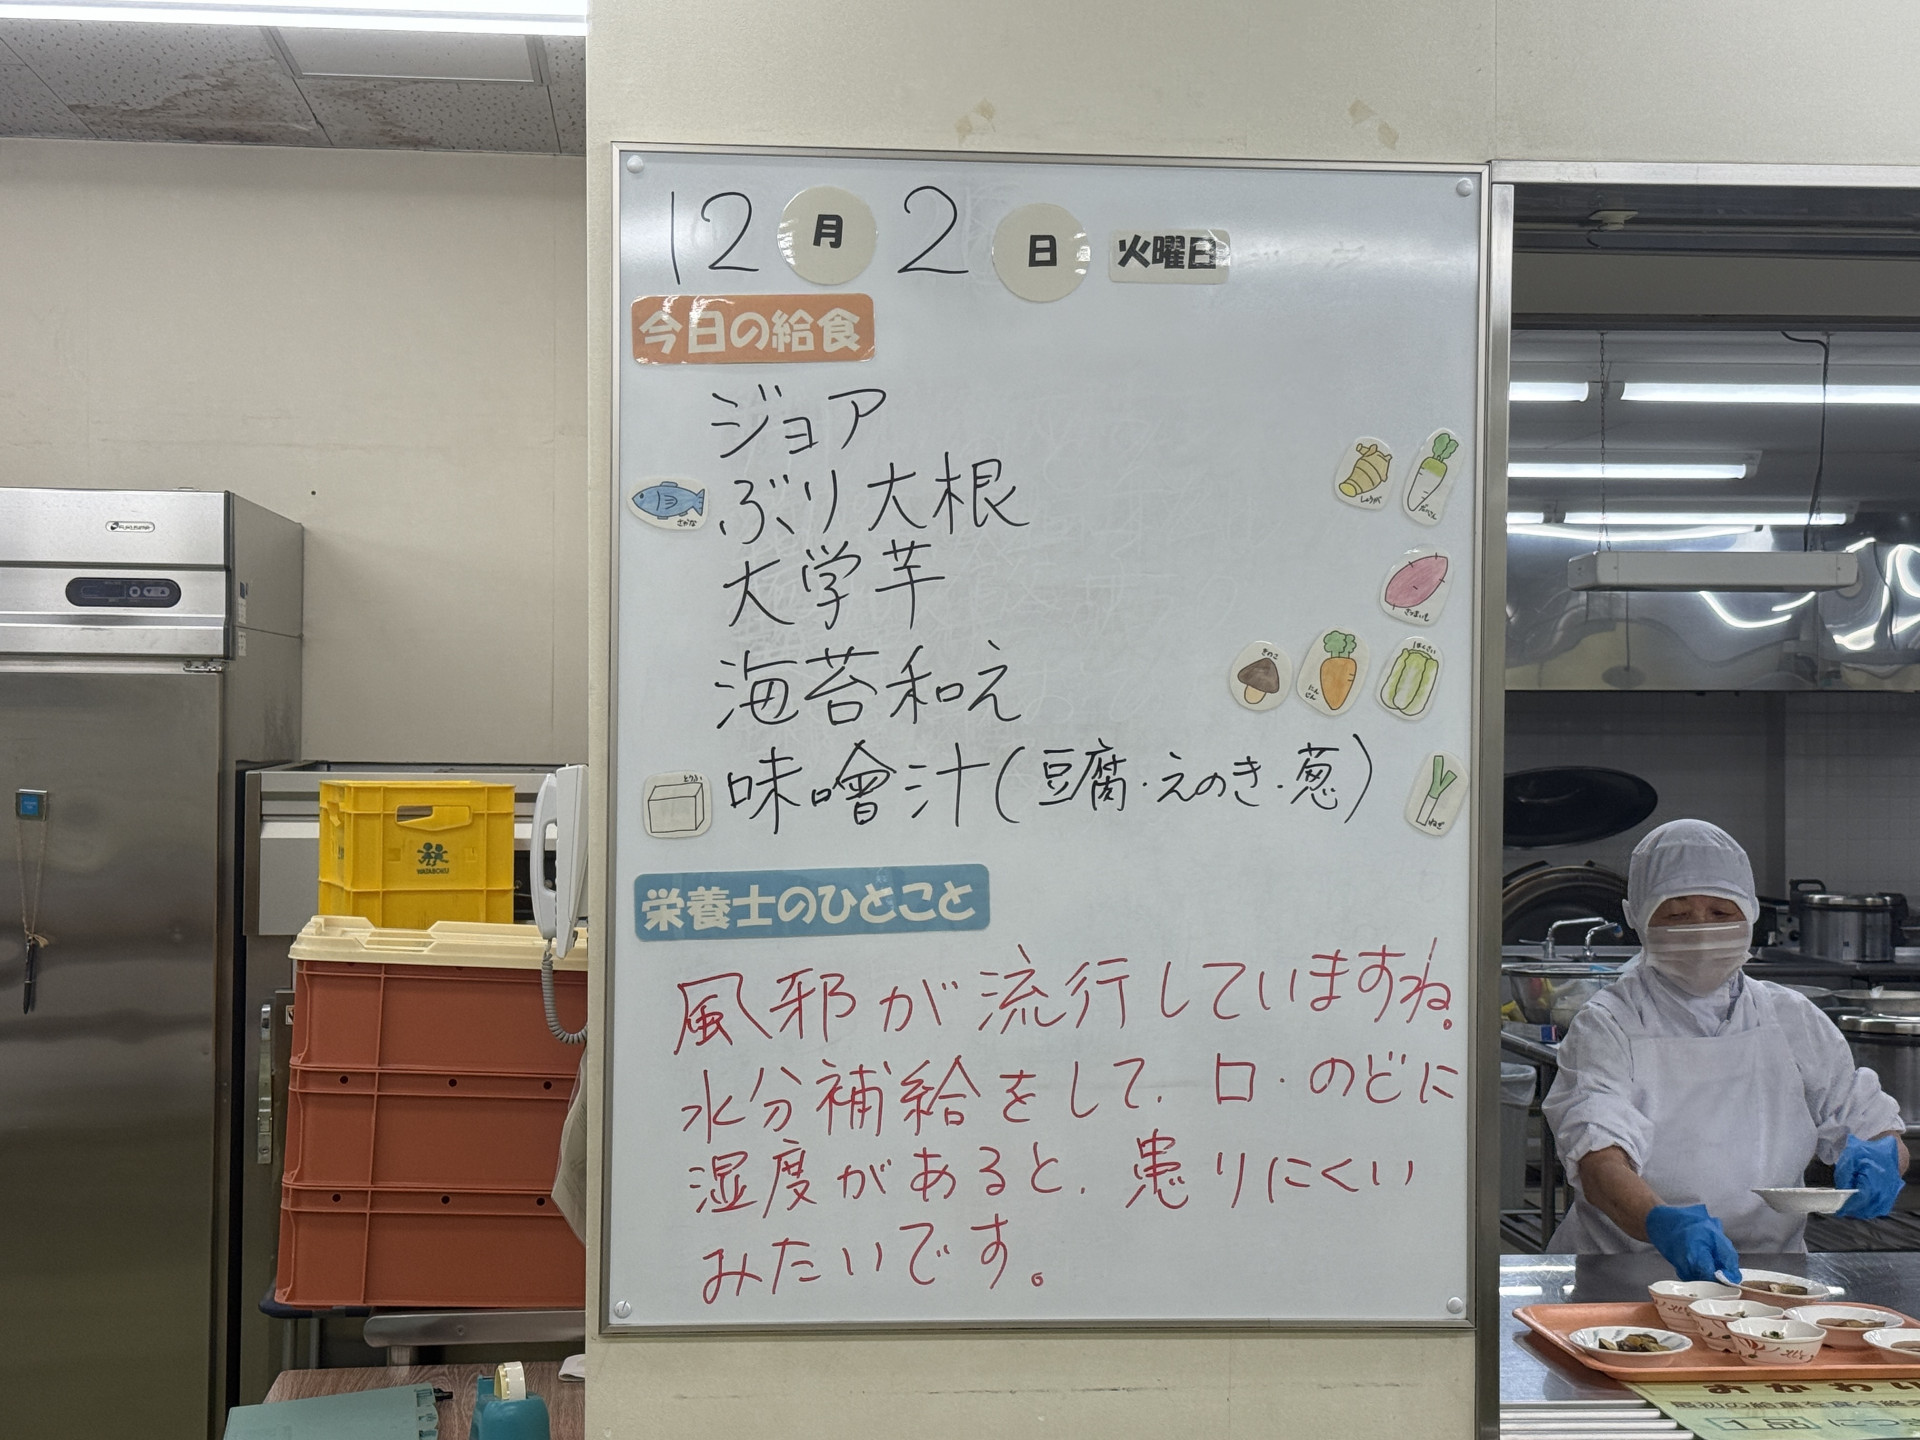 12月2日 火曜日
今日の給食
ジョア
ぶり大根
しょうが
だいこん
さかな
大学芋
さつまいも
海苔和え
きのこ
にんじん
はくさい
味噌汁(豆腐・えのき・葱)
とうふ
ねぎ
栄養士のひとこと
風邪が流行していますね。
水分補給をして、口・のどに
湿度があると、患りにくい
みたいです。
WATABOKU
おかわり
1品